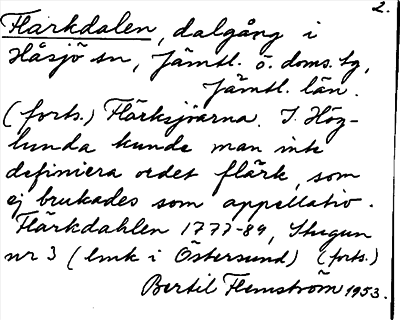 2.
Flärkdalen, dalgång i
Håsjö sn, Jämtl. ö. doms. sg,
Jämtl. län.
(forts.) Flärksjöarna. I Hög-
lunda kunde man inte
definiera ordet flärk, som
ej brukades som appellativ.
Flärkdahlen 1777-84, Stugun
nr 3 (lmk i Östersund) (forts.)
Bertil Flemström 1953.